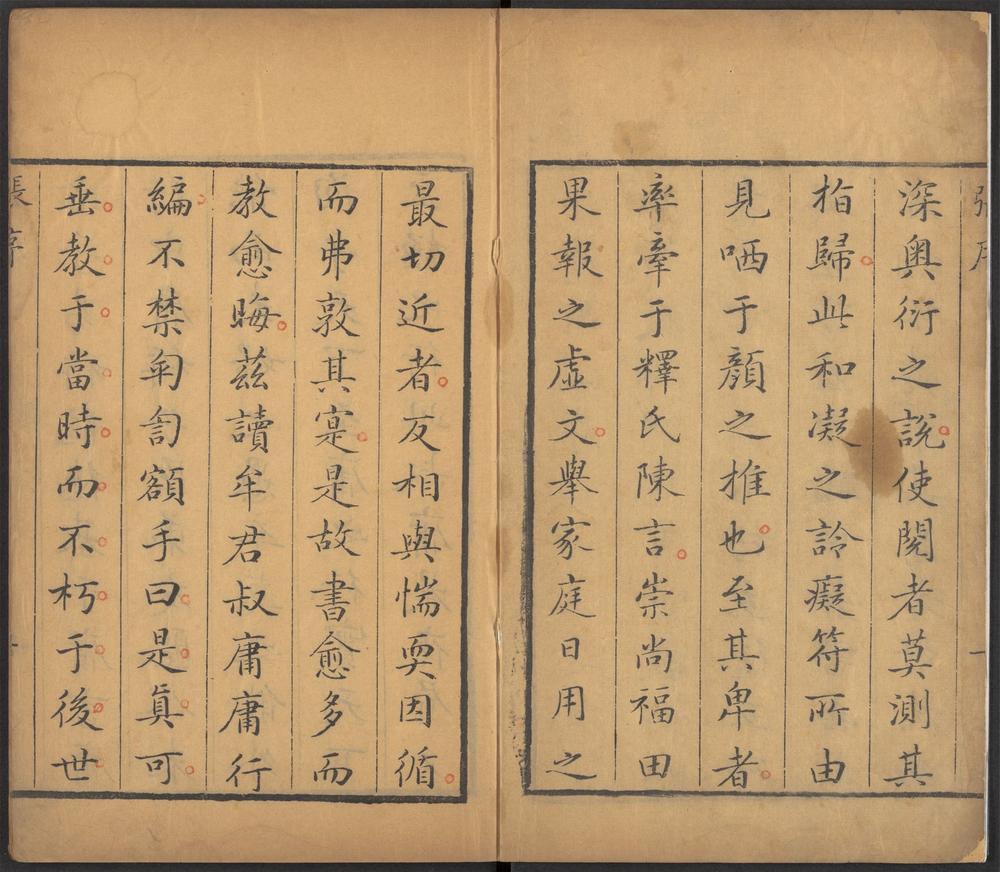 深奧衍之說使閱者莫測其
指歸此和凝之詅癡符所由
見哂于顏之推也至其卑者
率牽于釋氏陳言崇尚福田
果報之虛文舉家庭日用之
最切近者反相與惴耎因循
而弗敦其寔是故書愈多而
教愈晦茲讀牟君叔庸庸行
編不禁匍匐額手曰是真可
垂教于當時而不朽于後世